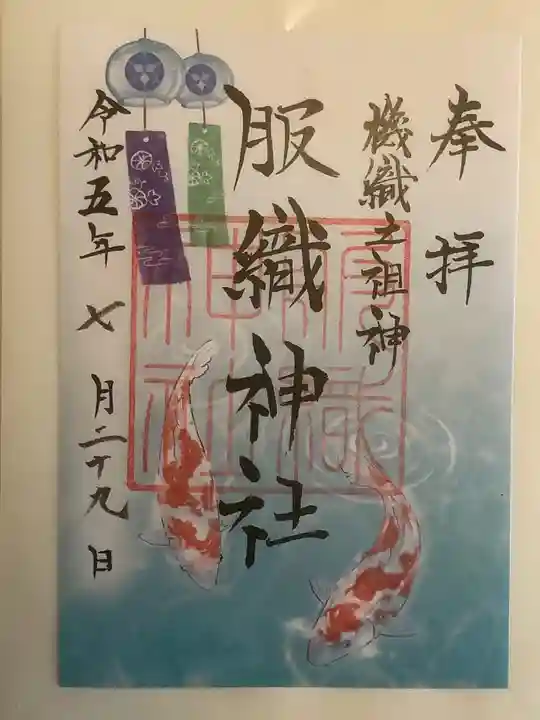 奉拝
機織之祖神
服織神社
服織神社
令和五年七月二十九日